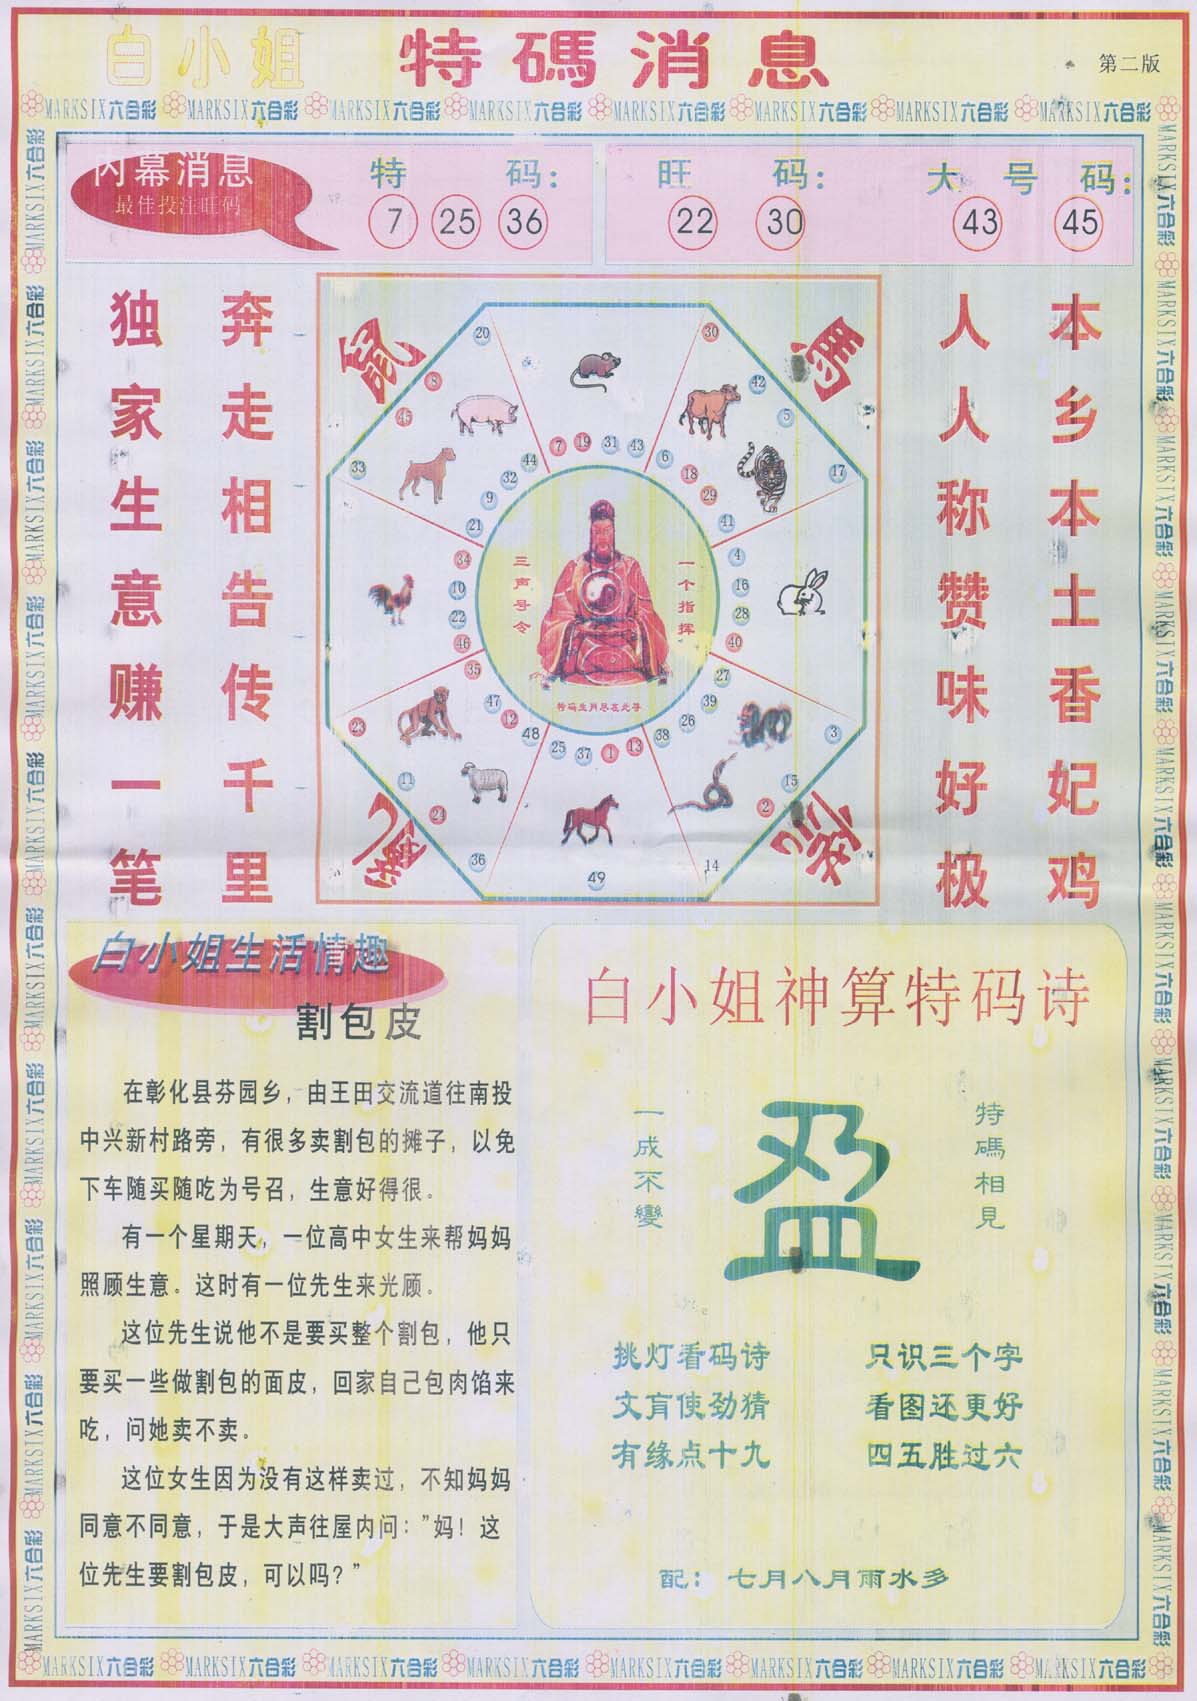 白小姐 特碼消息
第二版
MARKSIX六合彩 MARKSIX六合彩 MARKSIX六合彩 MARKSIX六合彩 MARKSIX六合彩 MARKSIX六合彩 MARKSIX六合彩 MARKSIX六合彩
内幕消息
最佳投注旺码
特码:
7 25 36
旺码:
22 30
大号码:
43 45
独家生意赚一笔
奔走相告传千里
人人称赞味好极
本乡本土香妃鸡
鼠
馬
龍
20
30
8
45
33
42
5
17
7 19 31 43
6 18 29 41
44 32 9 21
34 10 22 46
4 16 28 40
35 47 12 48
27 39 26 38
25 37 1 13
23
11
24
36
49
14
2
15
3
三声号令
一个指挥
特码生肖尽在此寻
白小姐生活情趣
割包皮
在彰化县芬园乡，由王田交流道往南投
中兴新村路旁，有很多卖割包的摊子，以免
下车随买随吃为号召，生意好得很。
有一个星期天，一位高中女生来帮妈妈
照顾生意。这时有一位先生来光顾。
这位先生说他不是要买整个割包，他只
要买一些做割包的面皮，回家自己包肉馅来
吃，问她卖不卖。
这位女生因为没有这样卖过，不知妈妈
同意不同意，于是大声往屋内问："妈！这
位先生要割包皮，可以吗？"
白小姐神算特码诗
一成不變
盈
特碼相見
挑灯看码诗 只识三个字
文肓使劲猜 看图还更好
有缘点十九 四五胜过六
配：七月八月雨水多
MARKSIX六合彩 MARKSIX六合彩 MARKSIX六合彩 MARKSIX六合彩 MARKSIX六合彩 MARKSIX六合彩 MARKSIX六合彩 MARKSIX六合彩